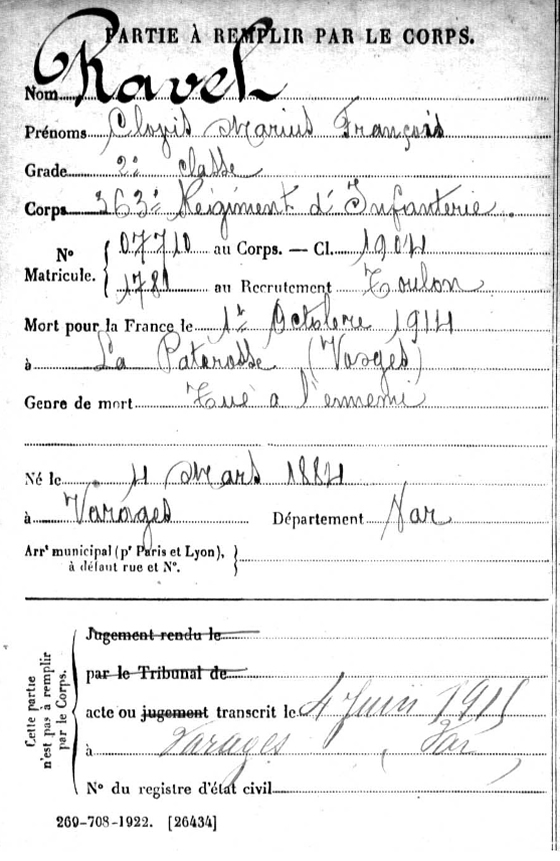 PARTIE À REMPLIR PAR LE CORPS.
Nom Ravel
Prénoms Clovis Marius François
Grade 2e classe
Corps 363e Régiment d'Infanterie.
No Matricule. 07710 au Corps. — Cl. 1904
1781 au Recrutement Toulon
Mort pour la France le 1er Octobre 1914
à La Paterosse (Vosges)
Genre de mort Tué a l'ennemi
Né le 4 Mars 1884
à Varages Département Var
Arrt municipal (pr Paris et Lyon),
à défaut rue et No.
Cette partie
n'est pas à remplir
par le Corps.
Jugement rendu le
par le Tribunal de
acte ou jugement transcrit le 4 Juin 1915
à Varages (Var)
No du registre d'état civil
269-708-1922. [26434]